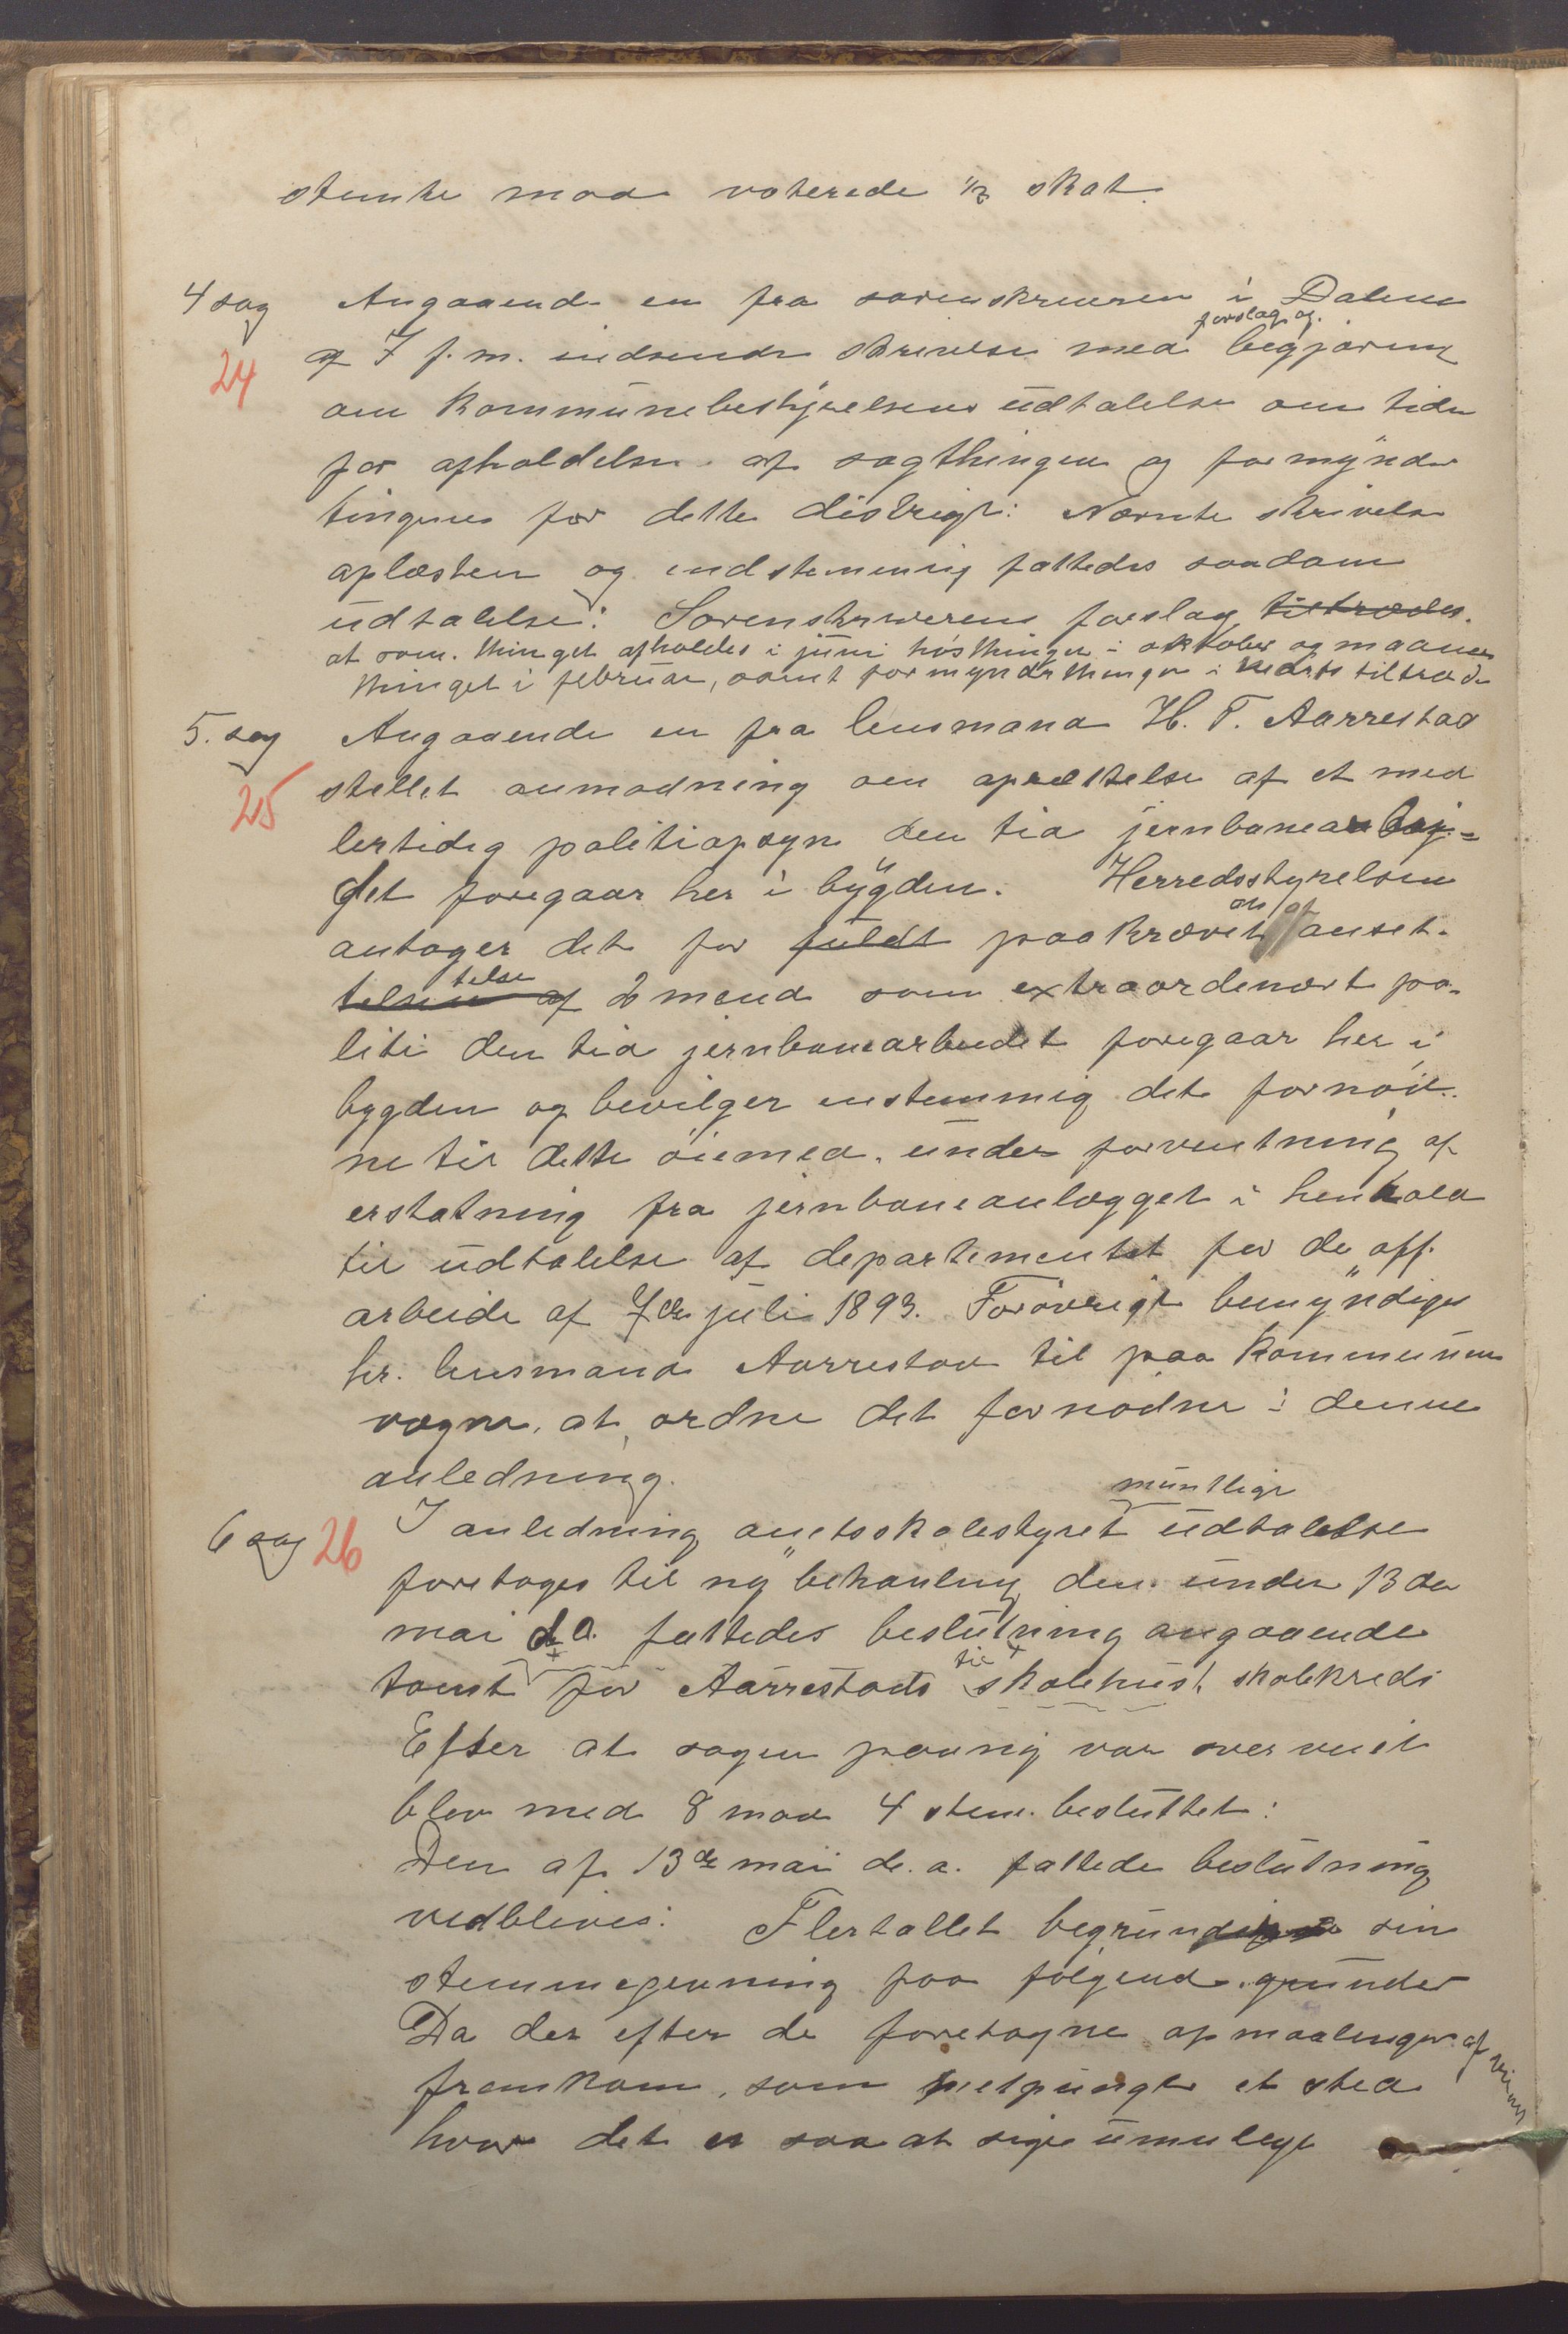 stemte mod voterede ½ skat.
4 sag Angaaende en fra sorenskriveren i Dalene
24 af 7 f. m. indsendt skrivelse med forslag og begjæring
om kommunebestyrelsens udtalelse om tiden
for afholdelse af sagthingene og formynder
tingene for dette distrigt: Nævnte skrivelse
oplæstes og endstemmig fattedes saadan
udtalelse: Sorenskriverens forslag tiltrædes.
at som. thinget afholdes i juni høstthinget i oktober og maaneds
thinget i februar, samt formynderthinget i marts tiltrædes
5. sag Angaaende en fra lensmand H. T. Aarrestad
25 stellet anmodning om oprettelse af et med
lertidig politiopsyn den tid jernbanearbej-
det foregaar her i bygden. Herredsstyrelsen
antager det for fuldt paakrævet at anset-
telsen af telse 2 mænd som extraordenært po-
liti den tid jernbanearbeidet foregaar her i
bygden og bevilger enstemmig det fornød-
ne til dette øiemed, under forventning af
erstatning fra jernbaneanlægget i henhold
til udtalelse af departementet for de off.
arbeide af 7de juli 1893. Forøvrigt bemyndiges
hr. lensmand Aarrestad til paa kommunens
vegne at ordne det fornødne i denne
anledning.
6 sag 26 I anledning amtsskolestyret muntlige udtalelse
foretages til ny behanling den under 13de
mai d.a. fattedes beslutning angaaende
tomt for Aarrestads til skolehus skolekreds
Efter at sagen paany var overveiet
blev med 8 mod 4 stem. besluttet:
Den af 13de mai d. a. fattede beslutning
vedblives: Flertallet begrunder sin
stemmegivning paa følgende grunder
Da der efter de foretagne opmaalinger af veien
fremkom, som midtpunkt et sted
hvor det er saa at sige umuligt